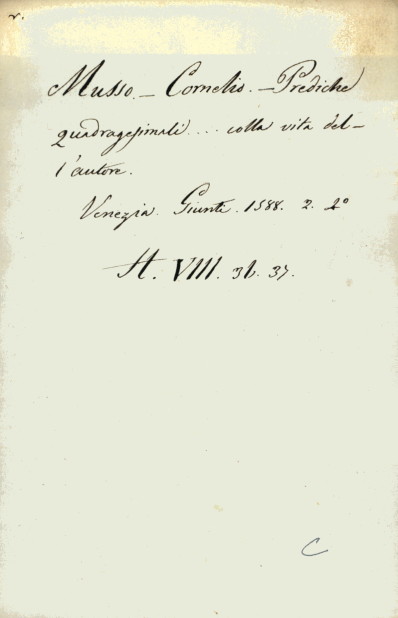 v.
Musso. – Cornelio. – Prediche
quadragesimali .... colla vita del–
l'autore.
Venezia. Giunti. 1588. 2. 4º
H. VIII. 36. 37.
C